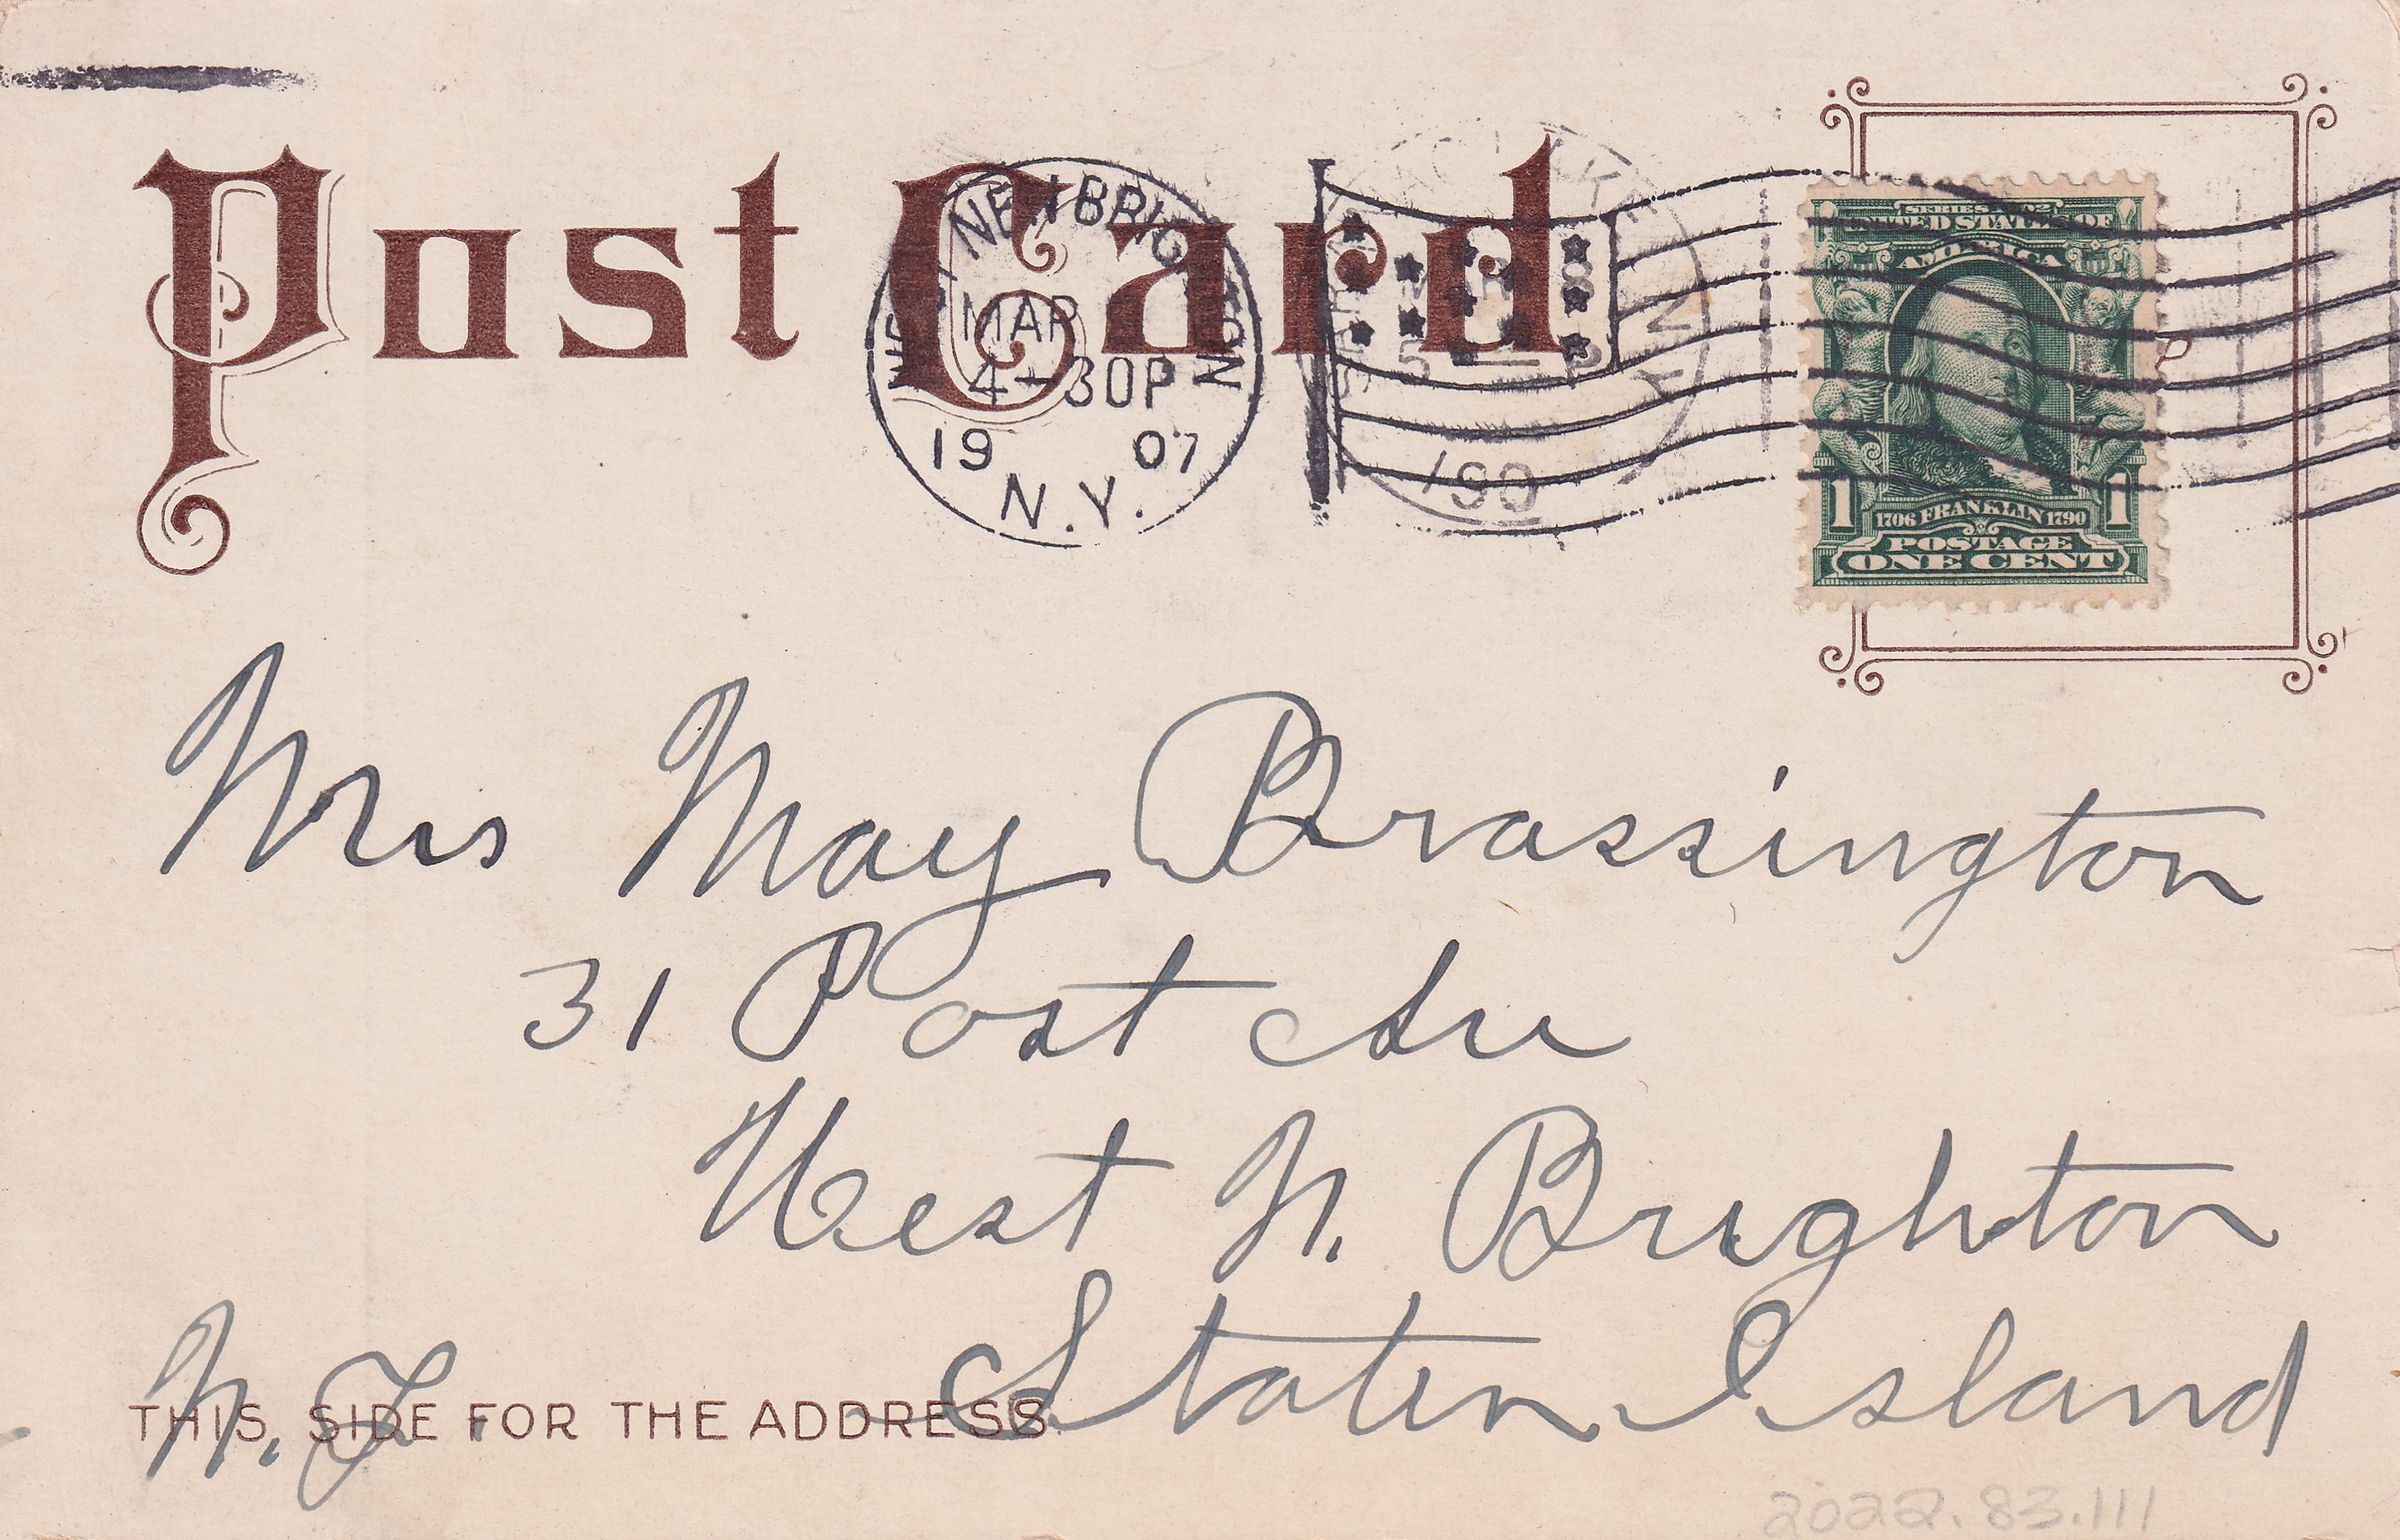 Post Card
WEST NEW BRIGHTON
MAR
4-30P
1907
N.Y.
LAKE
N.Y.
190
SERIES 1902
UNITED STATES OF
AMERICA
1 1706 FRANKLIN 1790 1
POSTAGE
ONE CENT
Mrs May Brassington
31 Post Av
West N. Brighton
Staten Island
N.Y.
THIS SIDE FOR THE ADDRESS
2022.83.111